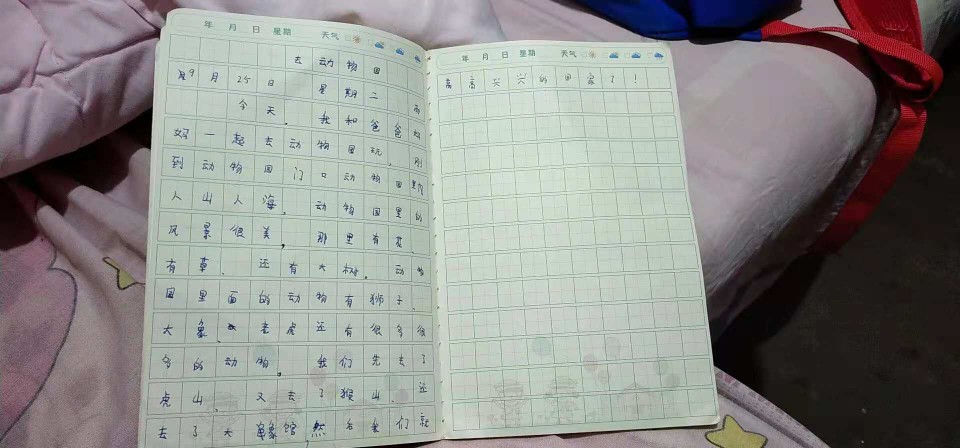 年 月 日 星期 天气
去动物园
9月25日 星期二 雨
今天，我和爸爸妈
妈一起去动物园玩，刚
到动物园门口动物园里
人山人海，动物园里的
风景很美，那里有花、
有草、还有大树。动物
园里面的动物有狮子、
大象、老虎还有很多很
多的动物，我们先去了
虎山、又去了猴山、还
去了大象馆，然后我们就
年 月 日 星期 天气
高高兴兴的回家了！